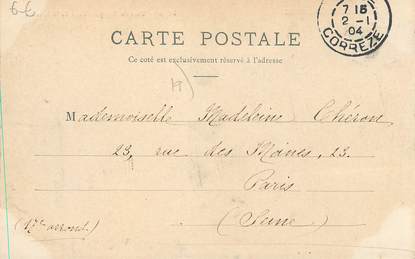 6-6
7 15
2 -1
04
CORRÈZE
CARTE POSTALE
Ce côté est exclusivement réservé à l'adresse
Mademoiselle Madeleine Chéron
23, rue des Moines, 23.
Paris
(17e arrond.) (Seine)